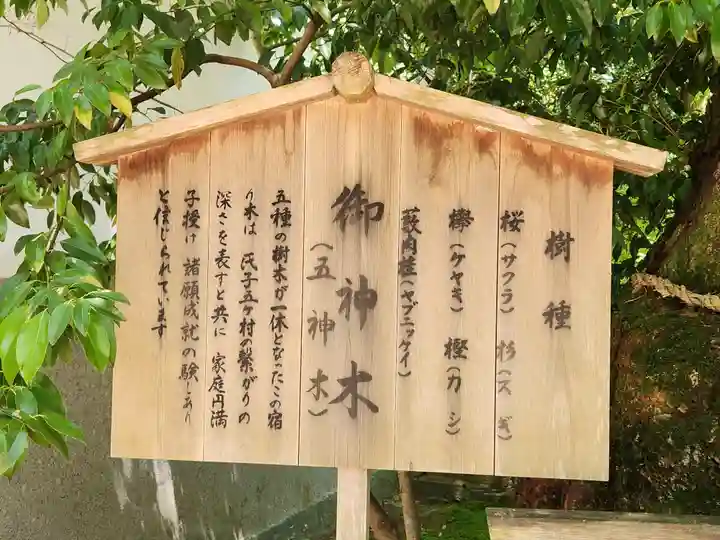 樹種
桜(サクラ) 杉(スギ)
欅(ケヤキ) 樫(カシ)
藪肉桂(ヤブニッケイ)
御神木
(五神木)
五種の樹木が一体となったこの宿
り木は 氏子五ヶ村の繋がりの
深さを表すと共に 家庭円満
子授け 諸願成就の験しあり
と信じられています